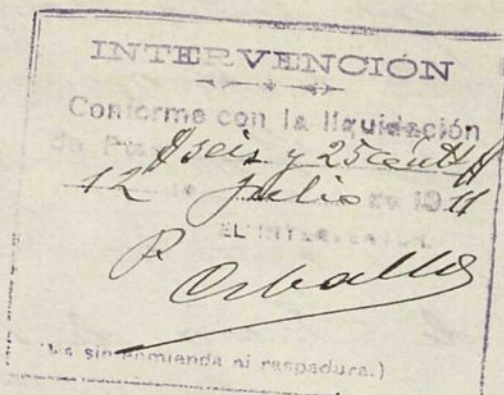 INTERVENCIÓN
Conforme con la liquidación
de
seis y 25 cents
12 de Julio de 1911
EL INTERVENTOR
P.
(Va sin enmienda ni raspadura.)